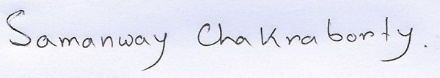 Samanway Chakraborty.